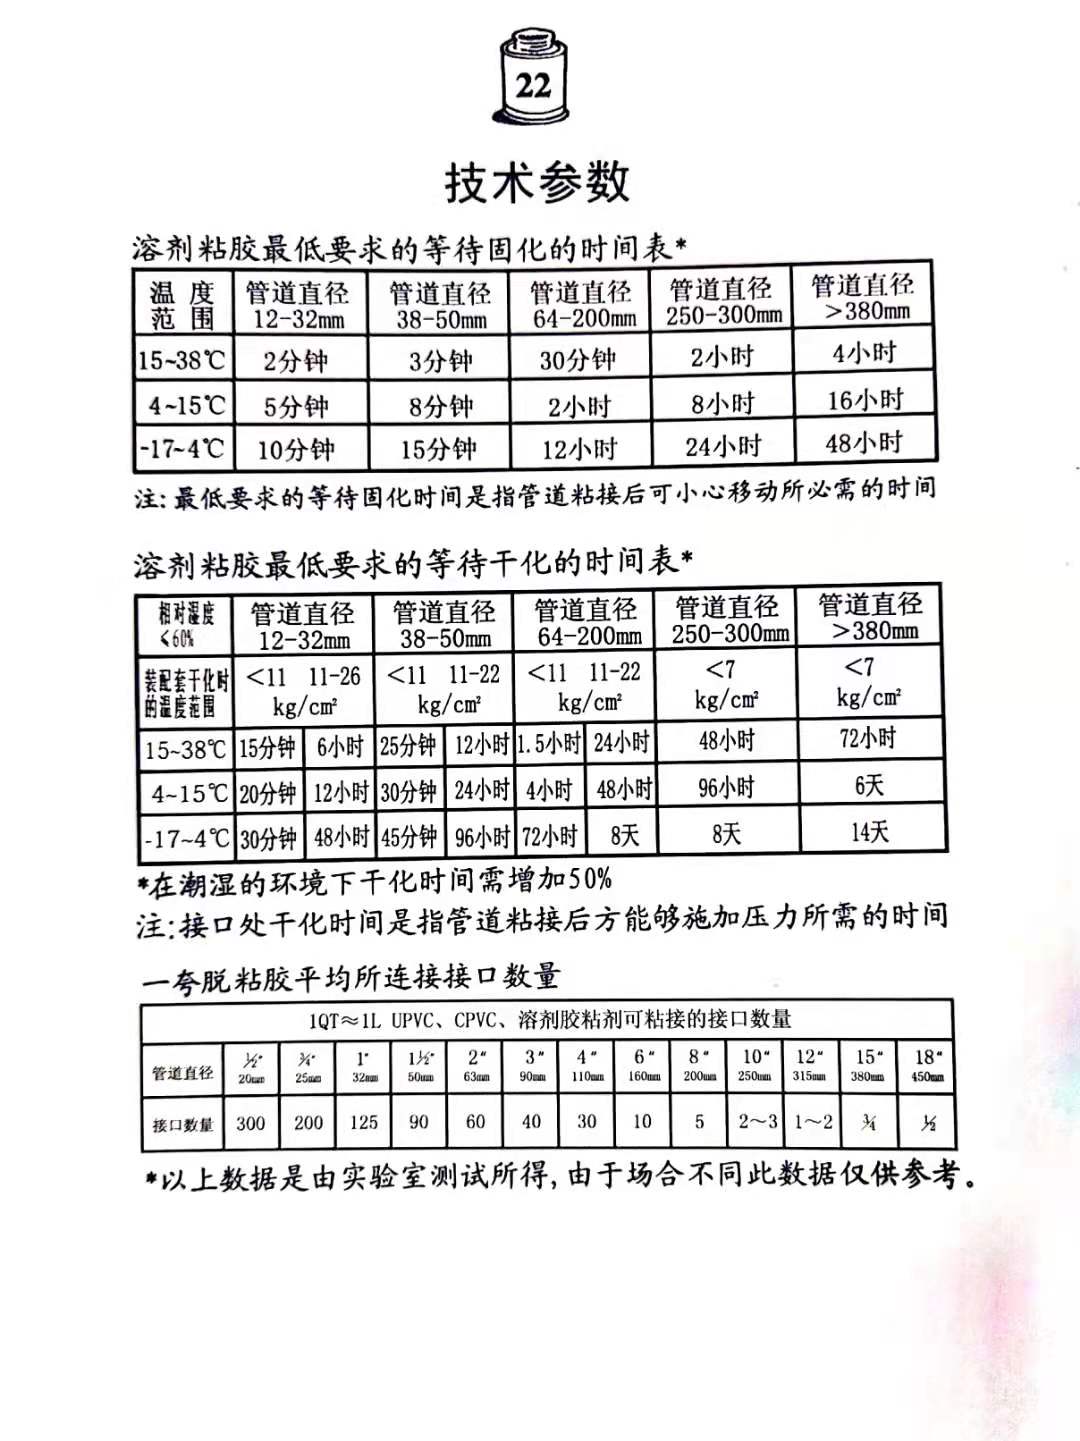 22
技术参数
溶剂粘胶最低要求的等待固化的时间表*
温度范围 管道直径12-32mm 管道直径38-50mm 管道直径64-200mm 管道直径250-300mm 管道直径>380mm
15~38℃ 2分钟 3分钟 30分钟 2小时 4小时
4~15℃ 5分钟 8分钟 2小时 8小时 16小时
-17~4℃ 10分钟 15分钟 12小时 24小时 48小时
注: 最低要求的等待固化时间是指管道粘接后可小心移动所必需的时间
溶剂粘胶最低要求的等待干化的时间表*
相对湿度≤60% 管道直径12-32mm 管道直径38-50mm 管道直径64-200mm 管道直径250-300mm 管道直径>380mm
装配套干化时的温度范围 <11 11-26 kg/cm² <11 11-22 kg/cm² <11 11-22 kg/cm² <7 kg/cm² <7 kg/cm²
15~38℃ 15分钟 6小时 25分钟 12小时 1.5小时 24小时 48小时 72小时
4~15℃ 20分钟 12小时 30分钟 24小时 4小时 48小时 96小时 6天
-17~4℃ 30分钟 48小时 45分钟 96小时 72小时 8天 8天 14天
*在潮湿的环境下干化时间需增加50%
注:接口处干化时间是指管道粘接后方能够施加压力所需的时间
一夸脱粘胶平均所连接接口数量
1QT≈1L UPVC、CPVC、溶剂胶粘剂可粘接的接口数量
管道直径 ½" 20mm ¾" 25mm 1" 32mm 1½" 50mm 2" 63mm 3" 90mm 4" 110mm 6" 160mm 8" 200mm 10" 250mm 12" 315mm 15" 380mm 18" 450mm
接口数量 300 200 125 90 60 40 30 10 5 2~3 1~2 ¾ ½
*以上数据是由实验室测试所得,由于场合不同此数据仅供参考。